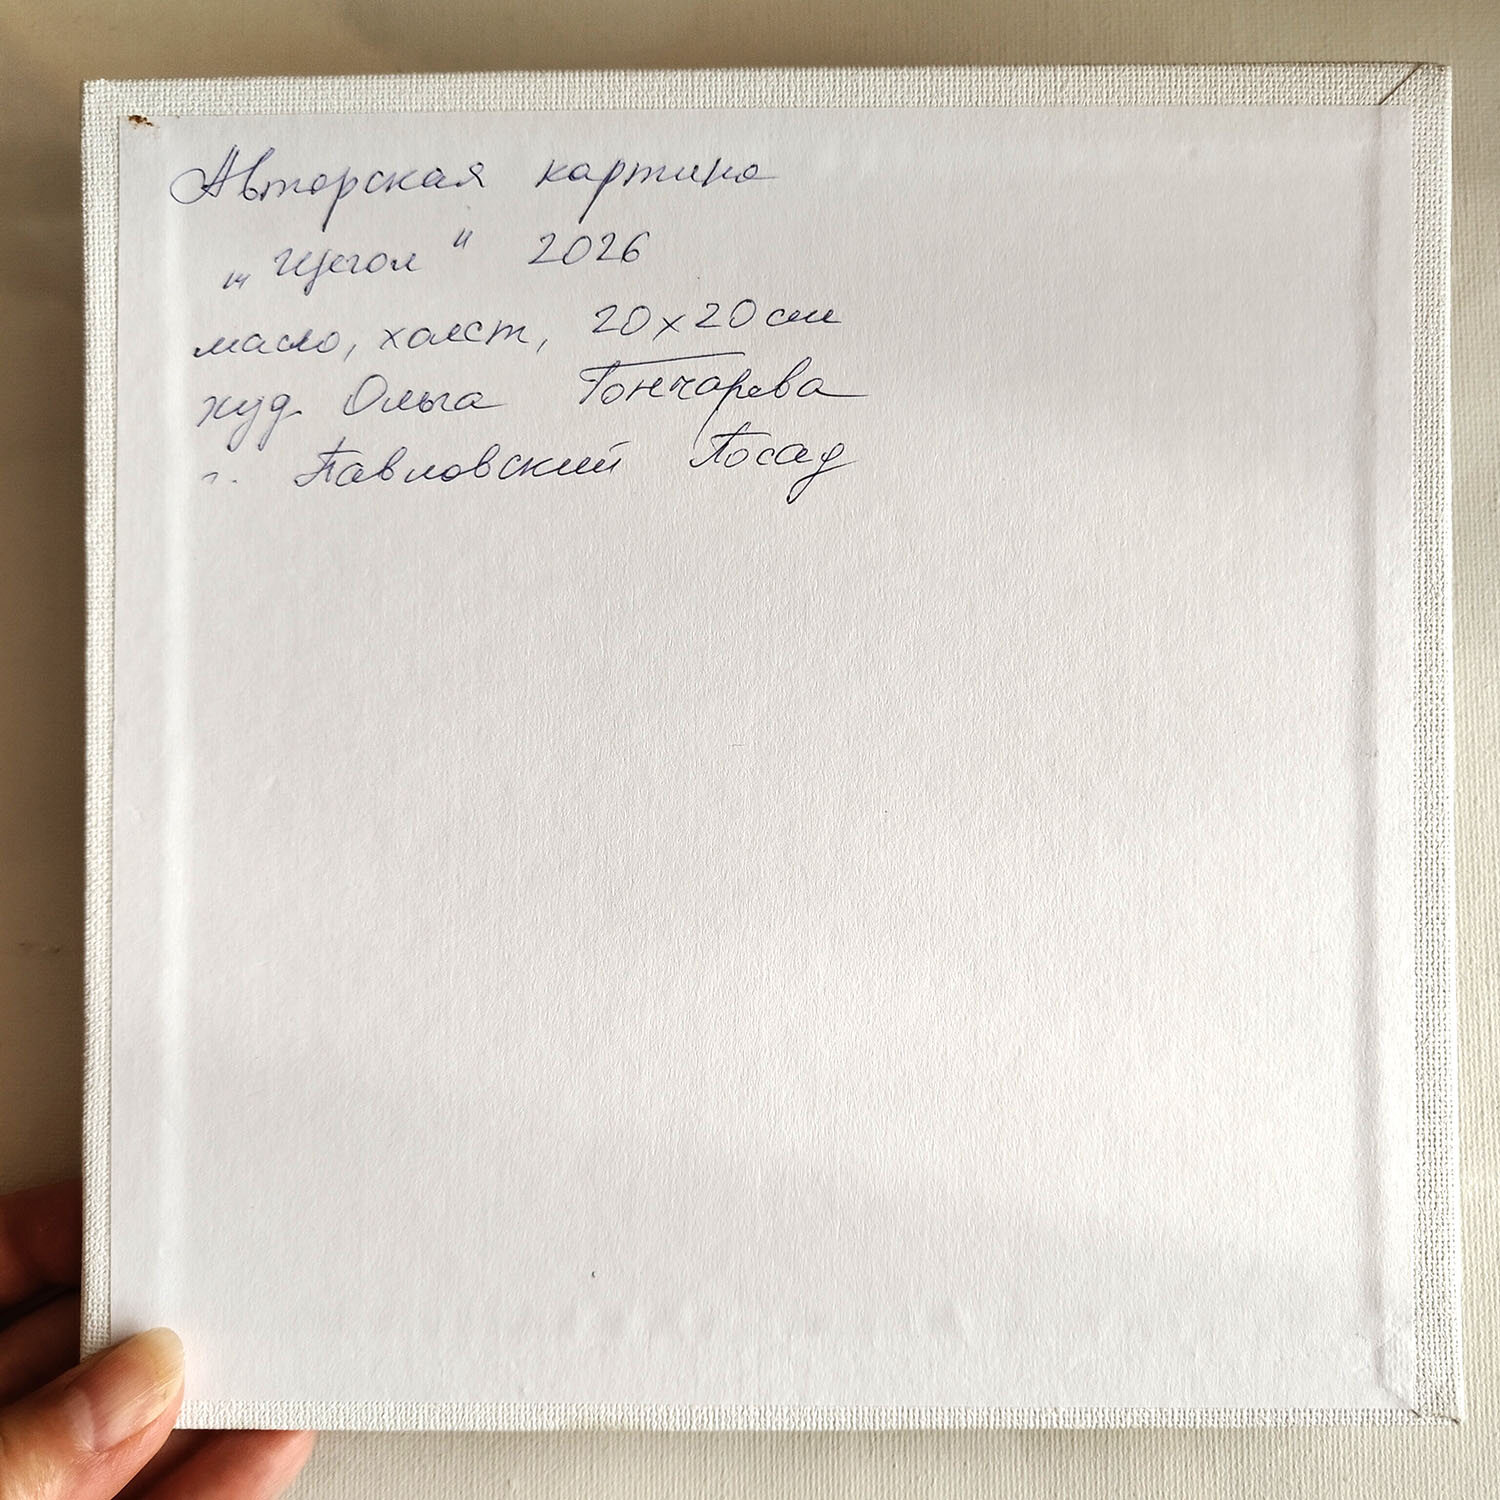 Авторская картина
„Щегол" 2026
масло, холст, 20х20см
худ. Ольга Гончарова
г. Павловский Посад